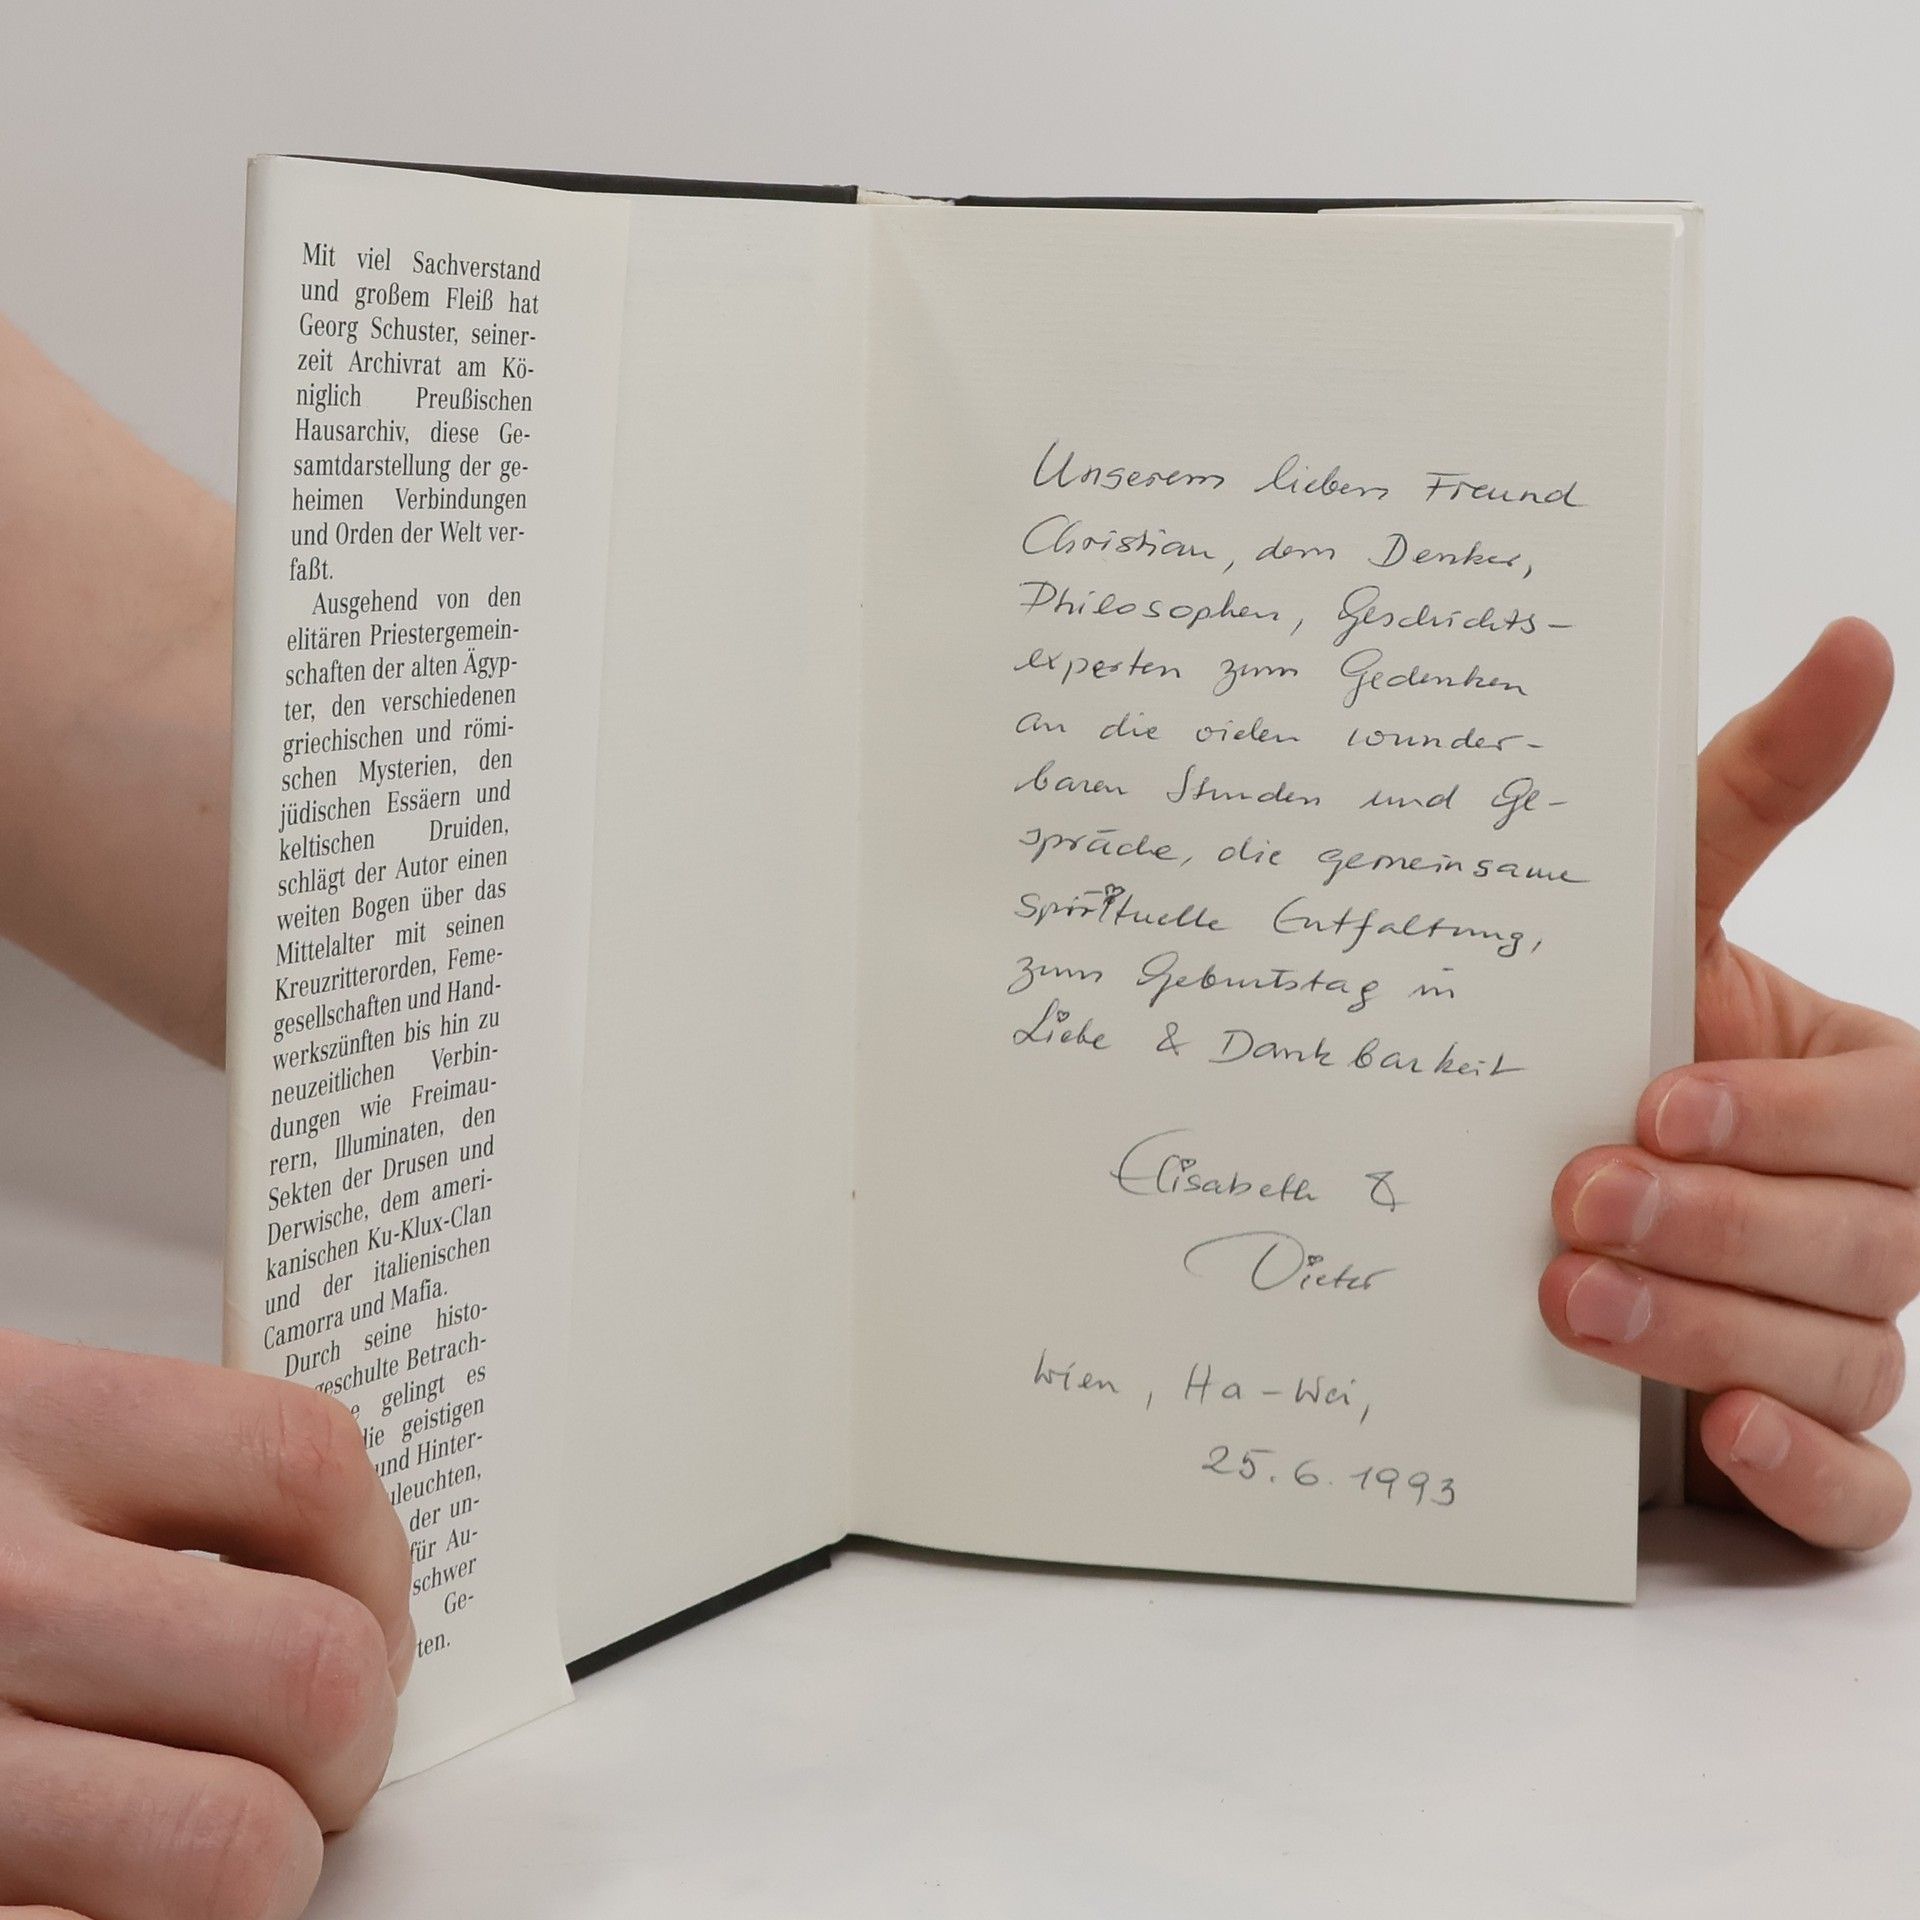 Mit viel Sachverstand
und großem Fleiß hat
Georg Schuster, seiner-
zeit Archivrat am Kö-
niglich Preußischen
Hausarchiv, diese Ge-
samtdarstellung der ge-
heimen Verbindungen
und Orden der Welt ver-
faßt.
Ausgehend von den
elitären Priestergemein-
schaften der alten Ägyp-
ter, den verschiedenen
griechischen und römi-
schen Mysterien, den
jüdischen Essäern und
keltischen Druiden,
schlägt der Autor einen
weiten Bogen über das
Mittelalter mit seinen
Kreuzritterorden, Feme-
gesellschaften und Hand-
werkszünften bis hin zu
neuzeitlichen Verbin-
dungen wie Freimau-
rern, Illuminaten, den
Sekten der Drusen und
Derwische, dem ameri-
kanischen Ku-Klux-Clan
und der italienischen
Camorra und Mafia.
Durch seine histo-
geschulte Betrach-
gelingt es
die geistigen
und Hinter-
uleuchten,
der un-
für Au-
schwer
Ge-
ten.
Unserem lieben Freund
Christian, dem Denker,
Philosophen, Geschichts-
experten zum Gedenken
an die vielen wunder-
baren Stunden und Ge-
spräche, die gemeinsame
spirituelle Entfaltung,
zum Geburtstag in
Liebe & Dankbarkeit
Elisabeth &
Dieter
Wien, Ha-Wei,
25.6.1993